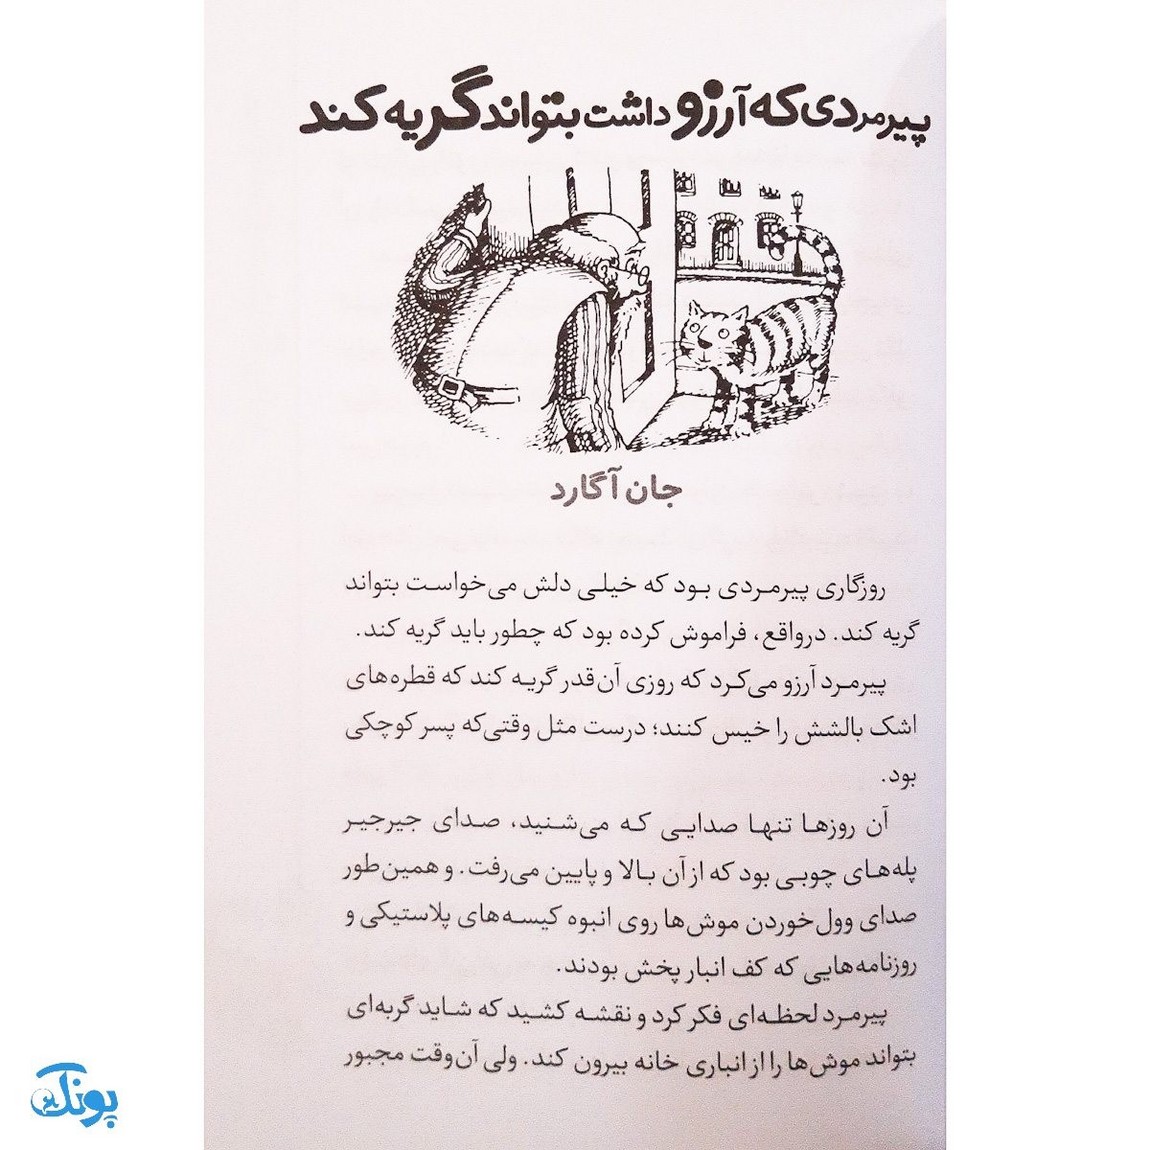 پیرمردی که آرزو داشت بتواند گریه کند
جان آگارد
روزگاری پیرمردی بود که خیلی دلش می‌خواست بتواند
گریه کند. درواقع، فراموش کرده بود که چطور باید گریه کند.
پیرمرد آرزو می‌کرد که روزی آن‌قدر گریه کند که قطره‌های
اشک بالشش را خیس کنند؛ درست مثل وقتی‌که پسر کوچکی
بود.
آن روزها تنها صدایی که می‌شنید، صدای جیرجیر
پله‌های چوبی بود که از آن بالا و پایین می‌رفت. و همین‌طور
صدای وول‌خوردن موش‌ها روی انبوه کیسه‌های پلاستیکی و
روزنامه‌هایی که کف انبار پخش بودند.
پیرمرد لحظه‌ای فکر کرد و نقشه کشید که شاید گربه‌ای
بتواند موش‌ها را از انباری خانه بیرون کند. ولی آن‌وقت مجبور
پونک